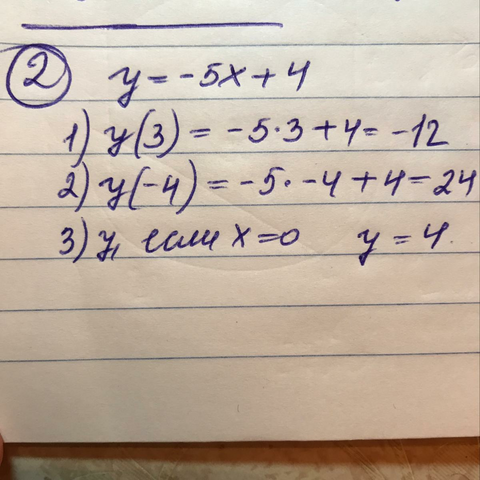 2 y = -5x + 4
1) y(3) = -5·3 + 4 = -12
2) y(-4) = -5·-4 + 4 = 24
3) y, если x = 0 y = 4.